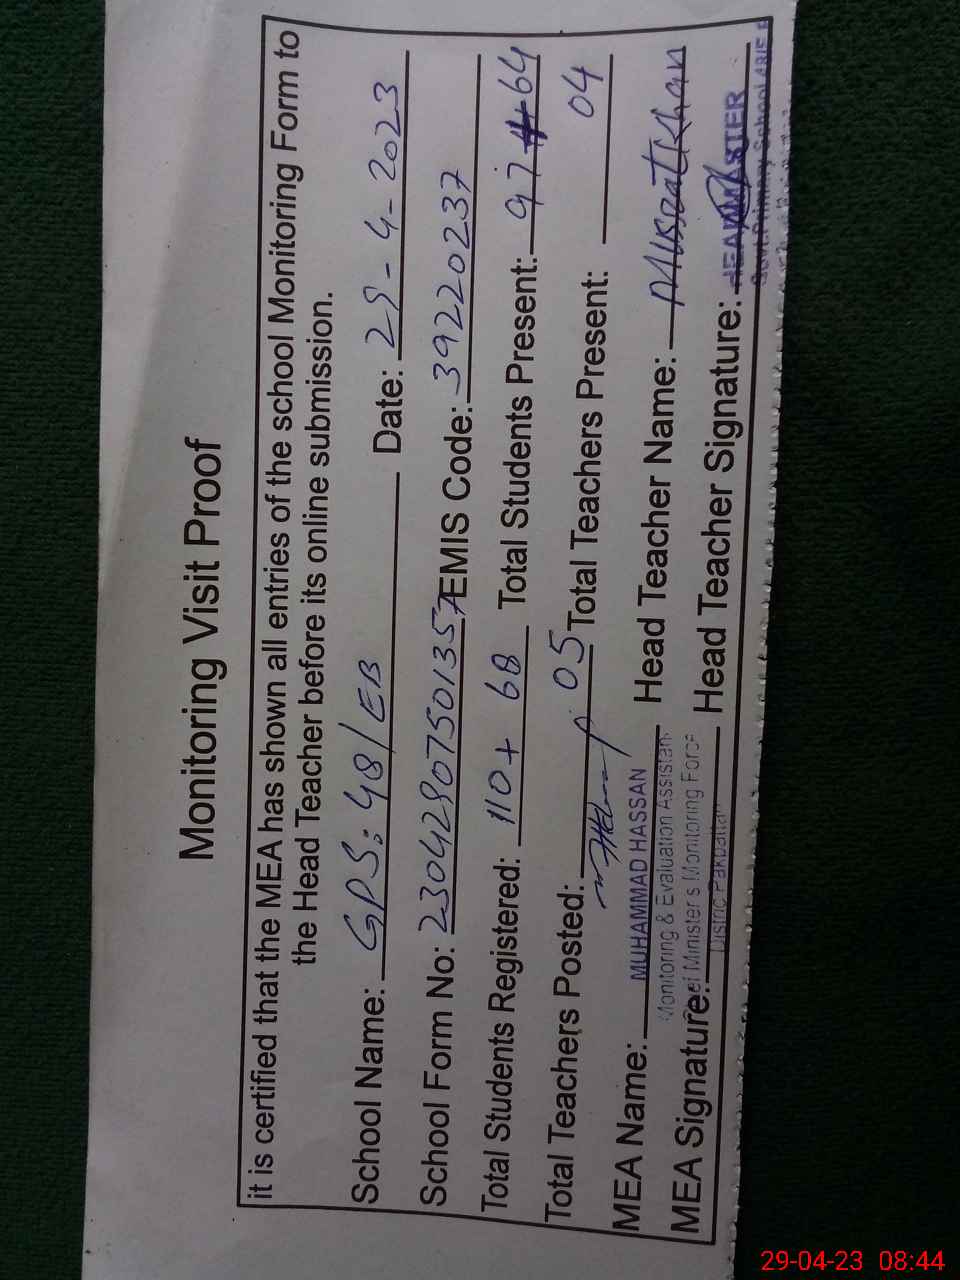 Monitoring Visit Proof
it is certified that the MEA has shown all entries of the school Monitoring Form to
the Head Teacher before its online submission.
School Name: GPS: 48/EB Date: 29-4-2023
School Form No: 23042807501357 EMIS Code: 39220237
Total Students Registered: 110+ 68 Total Students Present: 97+64
Total Teachers Posted: 05 Total Teachers Present: 04
MEA Name: MUHAMMAD HASSAN Head Teacher Name: Khan
Monitoring & Evaluation Assistan
MEA Signature: ei Minister s Monitoring Force Head Teacher Signature: HEADMASTER
District Pakpattan Govt Primary School 48/E B
29-04-23 08:44